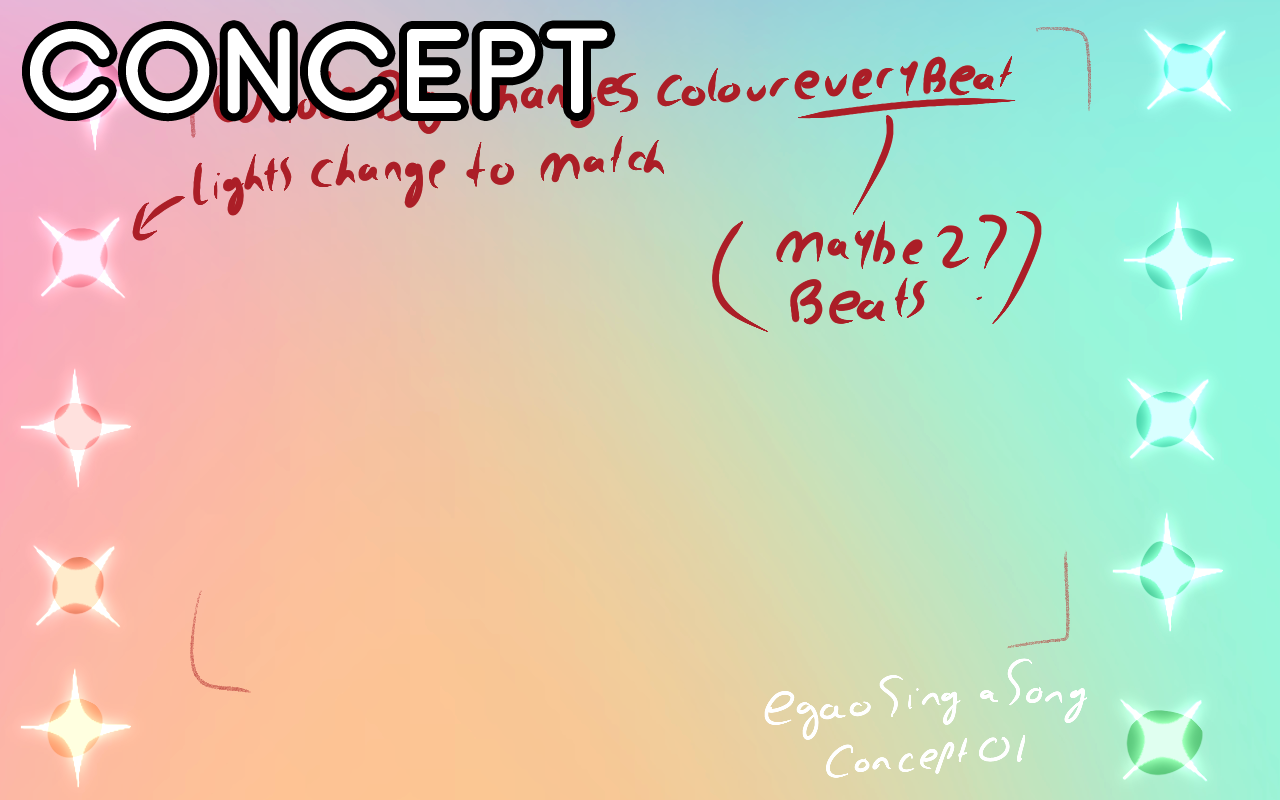 CONCEPT
changes colour every Beat
lights change to match
(maybe 2?)
Beats
egao Sing a Song
Concept 01